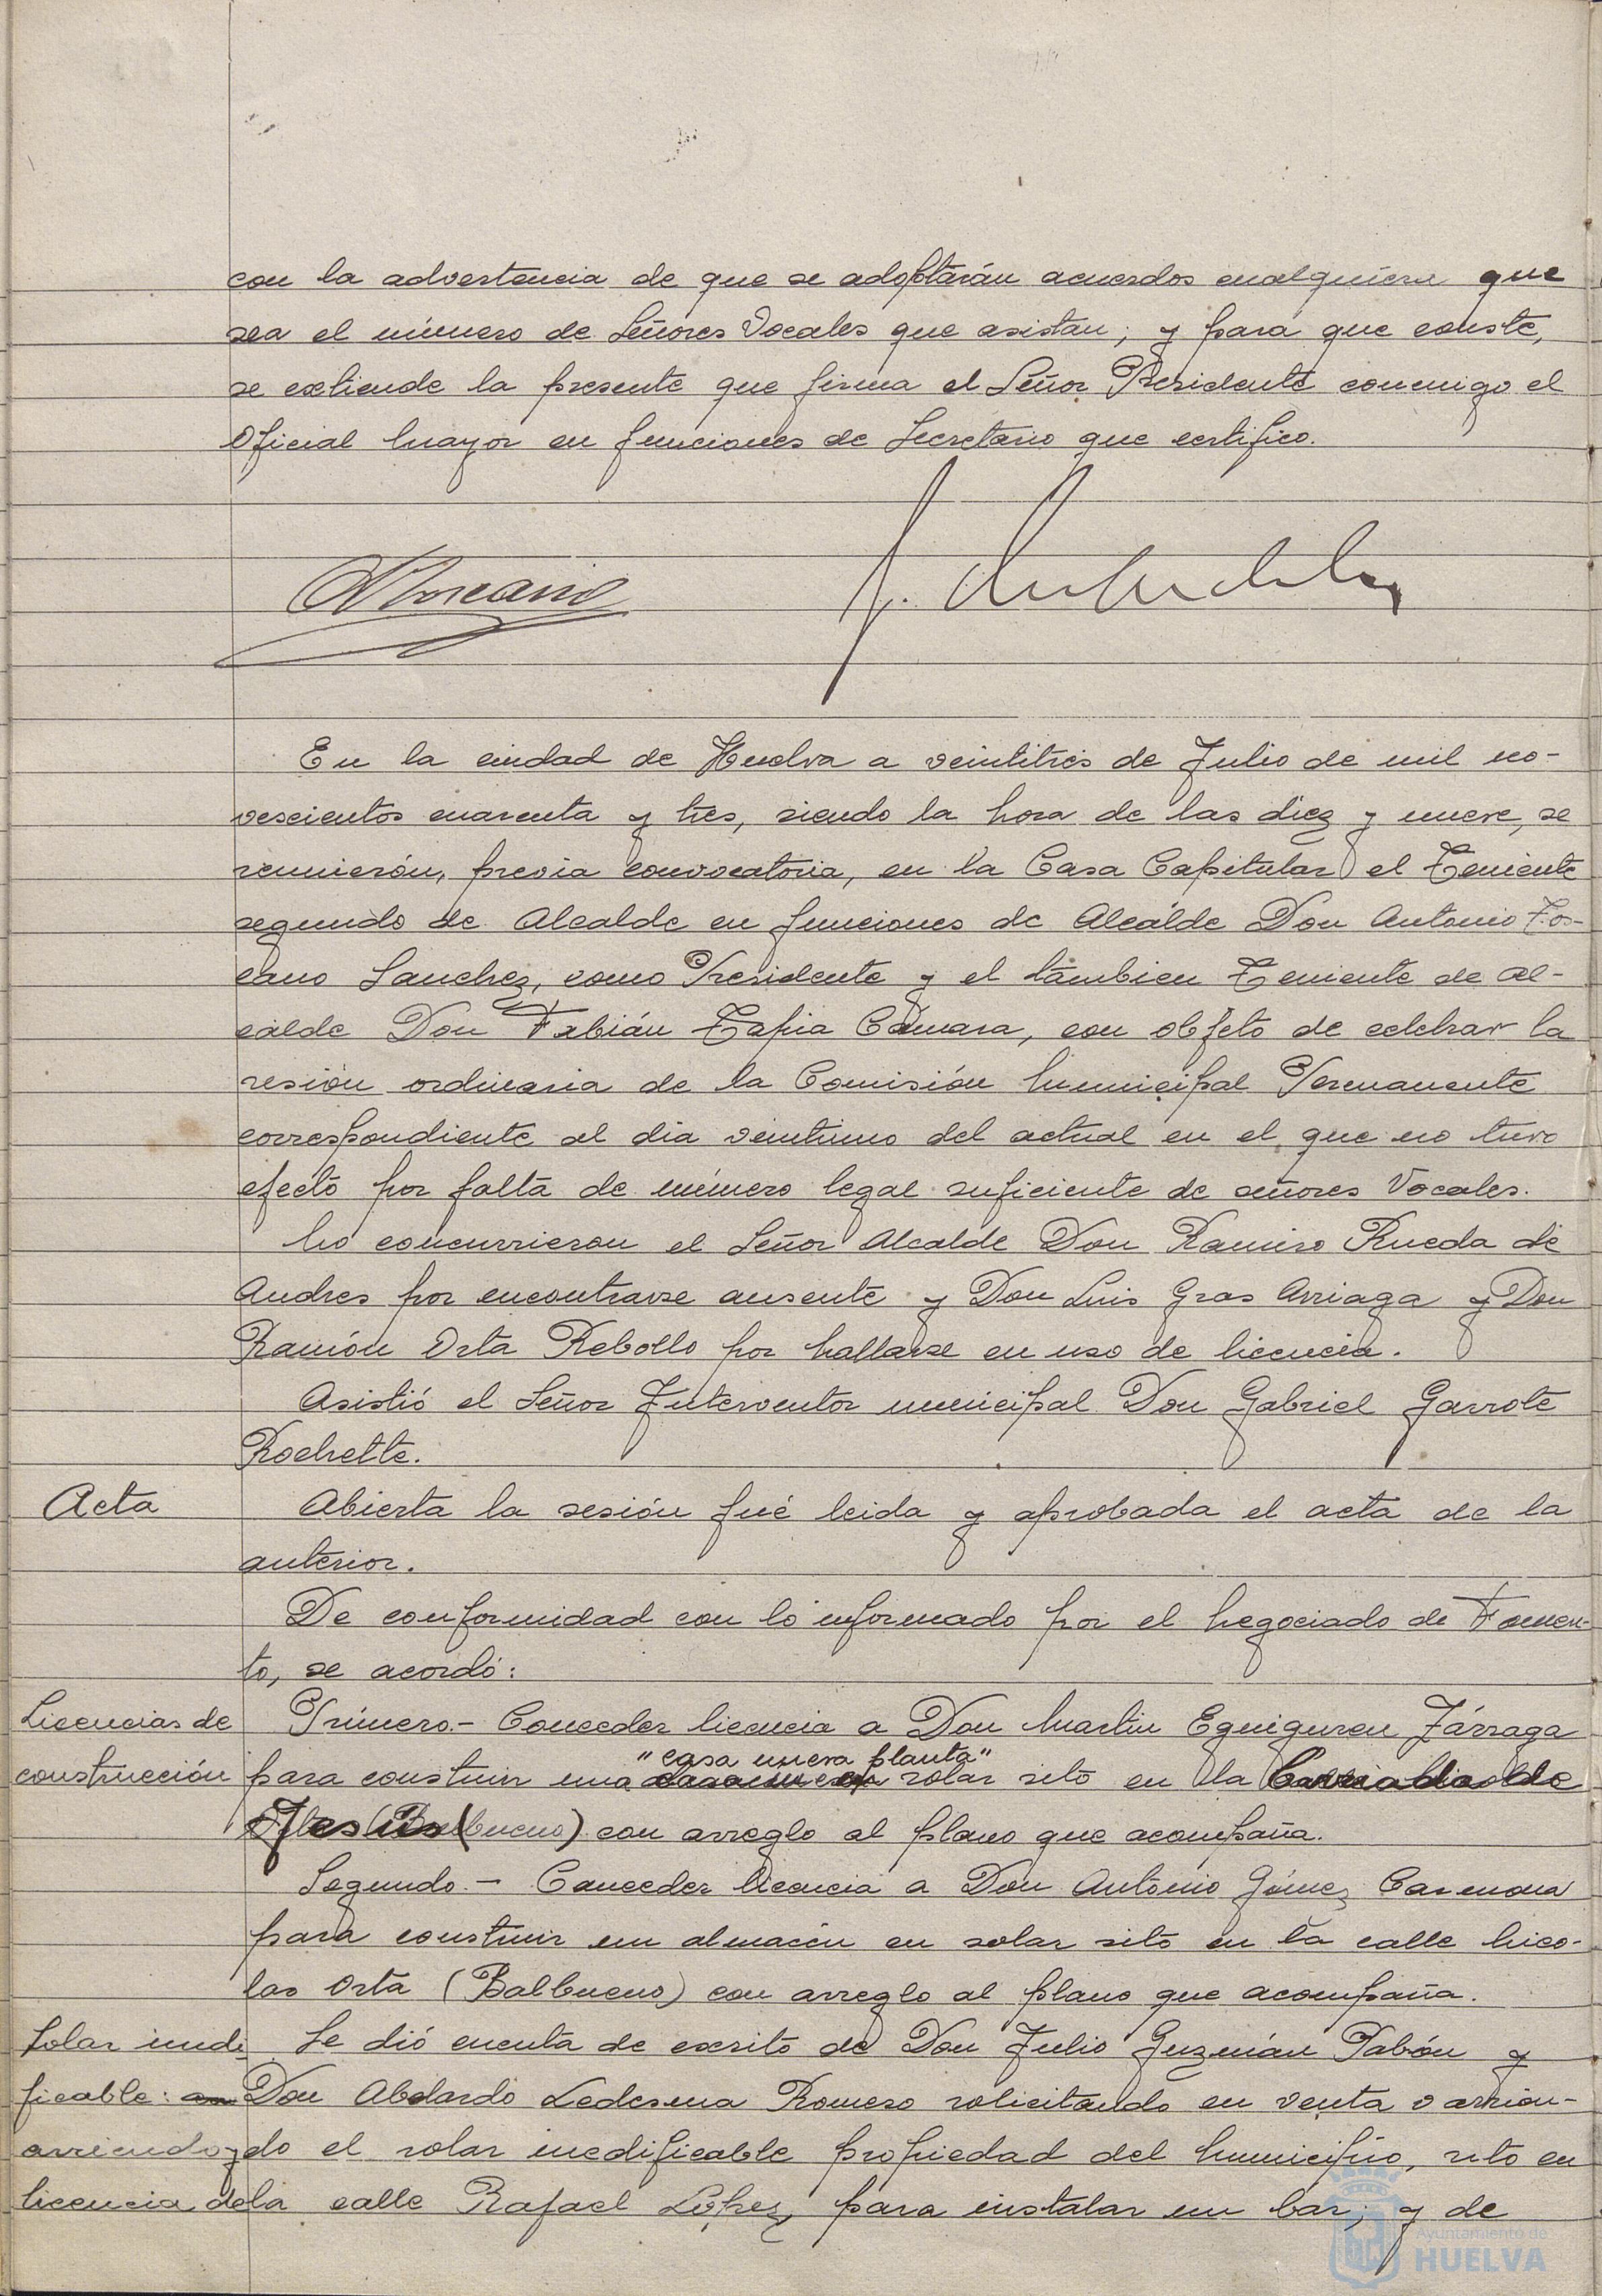 con la advertencia de que se adoptarán acuerdos cualquiera que
sea el número de Señores Vocales que asistan; y para que conste,
se extiende la presente que firma el Señor Presidente conmigo el
Oficial Mayor en funciones de Secretario que certifico.
En la ciudad de Huelva a veintitrés de Julio de mil no-
vescientos cuarenta y tres, siendo la hora de las diez y nueve, se
reunierón, previa convocatoria, en la Casa Capitular el Teniente
segundo de Alcalde en funciones de Alcálde Don Antonio Tos-
cano Sanchez, como Presidente y el tambien Teniente de Al-
calde Don Fabián Tapia Cámara, con objeto de celebrar la
sesión ordinaria de la Comisión Municipal Permanente
correspondiente al dia veintiuno del actual en el que no tuvo
efecto por falta de número legal suficiente de señores Vocales.
No concurrieron el Señor Alcalde Don Ramiro Rueda de
Andres por encontrarse ausente y Don Luis Gras Arriaga y Don
Ramón Orta Rebollo por hallarse en uso de licencia.
Asistió el Señor Interventor municipal Don Gabriel Garrote
Rochette.
Acta
Abierta la sesión fué leida y aprobada el acta de la
anterior.
De conformidad con lo informado por el Negociado de Fomen-
to, se acordó:
Licencias de
construcción
Primero.- Conceder licencia a Don Martin Eguiguren Tárraga
"casa nueva planta"
para construir una solar sito en la Barriada de
Jesús (Balbueno) con arreglo al plano que acompaña.
Segundo.- Conceder licencia a Don Antonio Gómez Carmona
para construir un almacén en solar sito en la calle Nico-
las Orta (Balbueno) con arreglo al plano que acompaña.
Solar inedi
ficable:
arriendo y
licencia de
Se dió cuenta de escrito de Don Julio Guzmán Pabón y
Don Abelardo Ledesma Romero solicitando en venta o arrien-
do el solar inedificable propiedad del Municipio, sito en
la calle Rafael López, para instalar un bar; y de
Ayuntamiento de
HUELVA